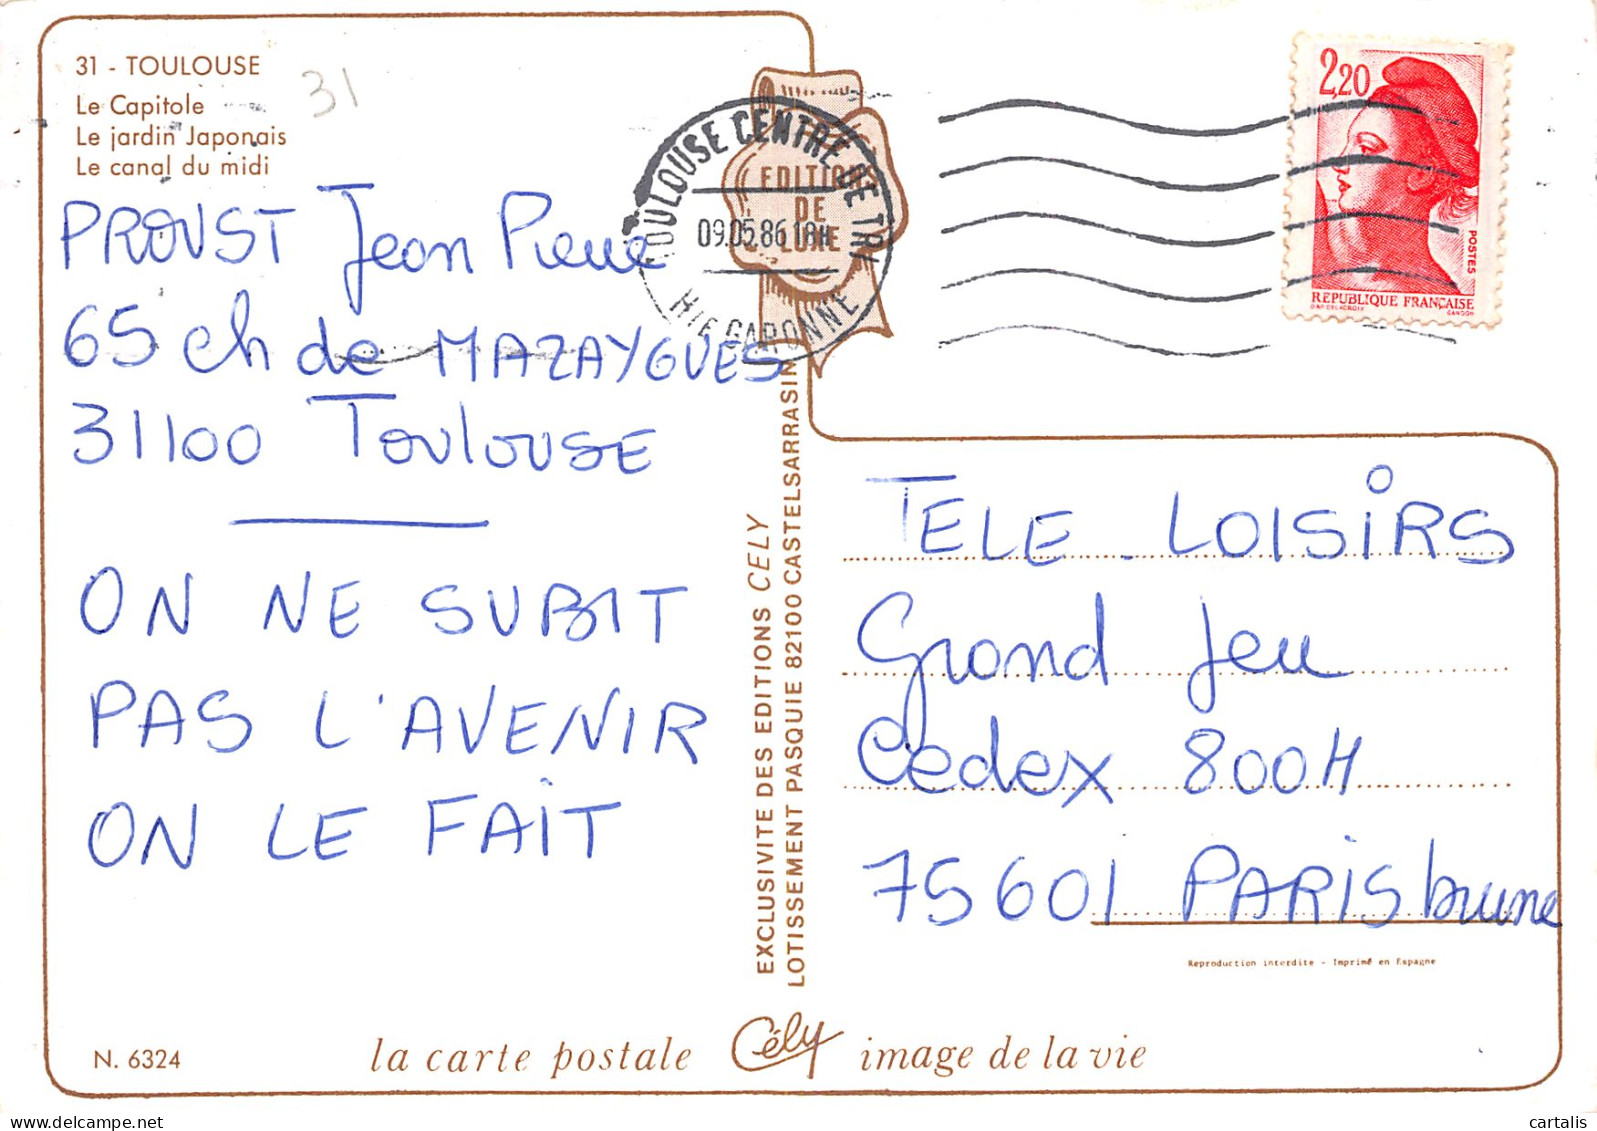 31 - TOULOUSE
31
Le Capitole
Le jardin Japonais
Le canal du midi
PROUST Jean Pierre
65 ch de MAZAYGUES
31100 Toulouse
ON NE SUBIT
PAS L'AVENIR
ON LE FAIT
EDITION
DE
LUXE
TOULOUSE CENTRE DE TRI
09.05.86 18H
HTE GARONNE
2,20
POSTES
REPUBLIQUE FRANÇAISE
D'AP. DELACROIX GANDON
EXCLUSIVITE DES EDITIONS CELY
LOTISSEMENT PASQUIE 82100 CASTELSARRASIN
TELE - LOISIRS
Grand Jeu
Cedex 800H
75601 PARIS brune
Reproduction interdite - Imprimé en Espagne
N. 6324
la carte postale Cély image de la vie
cartalis